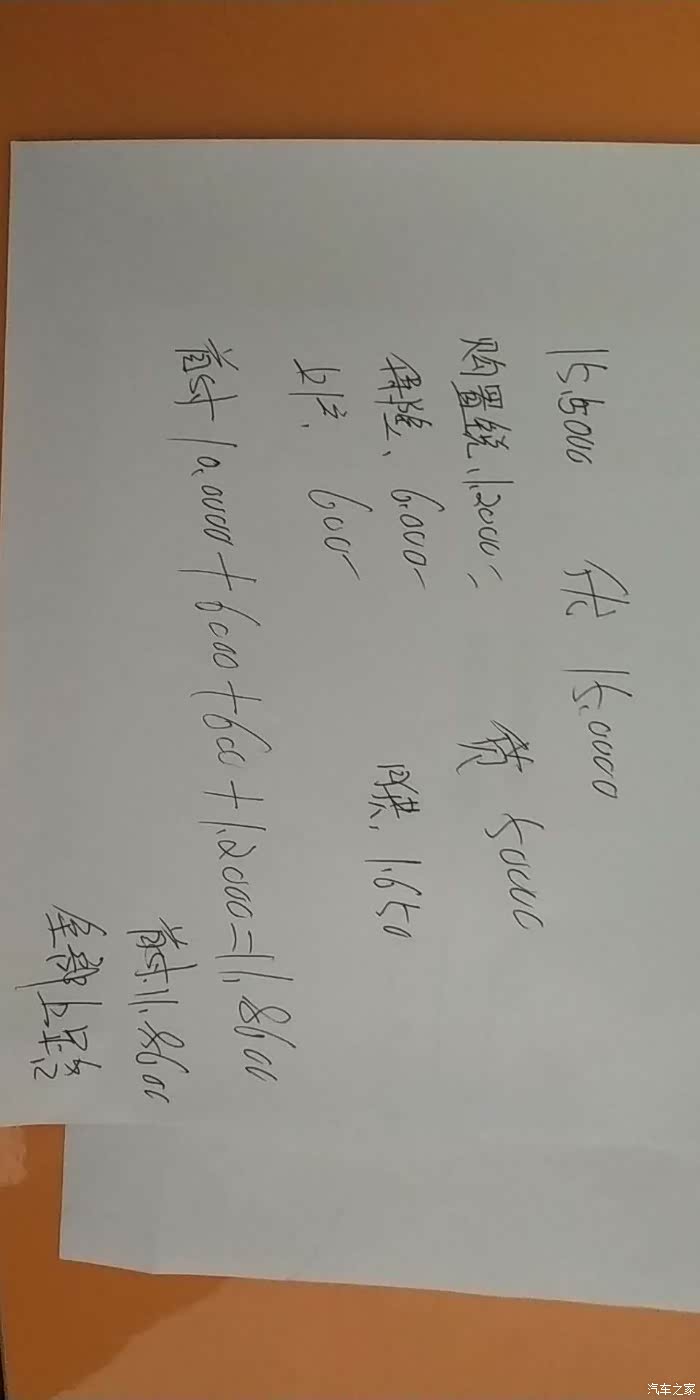 15.5000 优 15.0000
购置税、1.2000
贷 50000
保险、6000
月供、1.650
上户、600
首付 10.0000+6000+600+1.2000=11.8600
首付.11.8600
全部上完
汽车之家